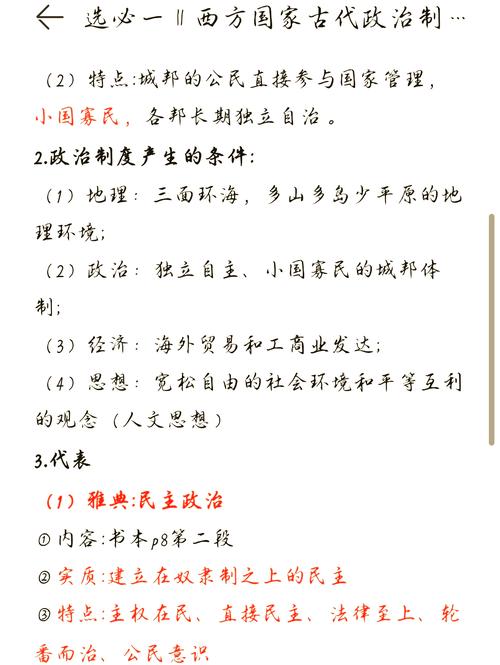 选必一 || 西方国家古代政治制…
（2）特点:城邦的公民直接参与国家管理，
小国寡民，各邦长期独立自治。
2.政治制度产生的条件:
（1）地理：三面环海，多山多岛少平原的地
理环境;
（2）政治：独立自主、小国寡民的城邦体
制;
（3）经济：海外贸易和工商业发达;
（4）思想：宽松自由的社会环境和平等互利
的观念（人文思想）
3.代表
（1）雅典:民主政治
①内容:书本p8第二段
②实质:建立在奴隶制之上的民主
③特点:主权在民、直接民主、法律至上、轮
番而治、公民意识